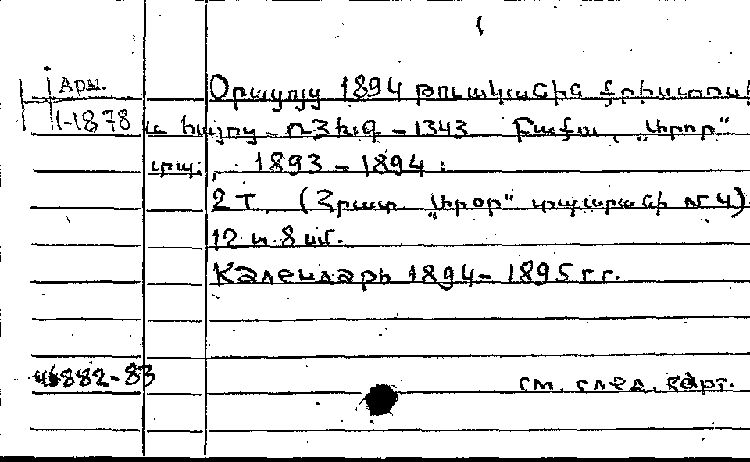 Арм.
1-1878
Օրացոյց 1894 թուականին քրիստոսի
և հայոց - ՌՅԽԳ - 1343 Բաքու, "Արօր"
տպ., 1893 - 1894:
2 Т. (Հրատ. "Արօր" տպարանի № 4)
12 և 8 ամ.
Календарь 1894 - 1895 г.г.
882-83
см. след. карт.